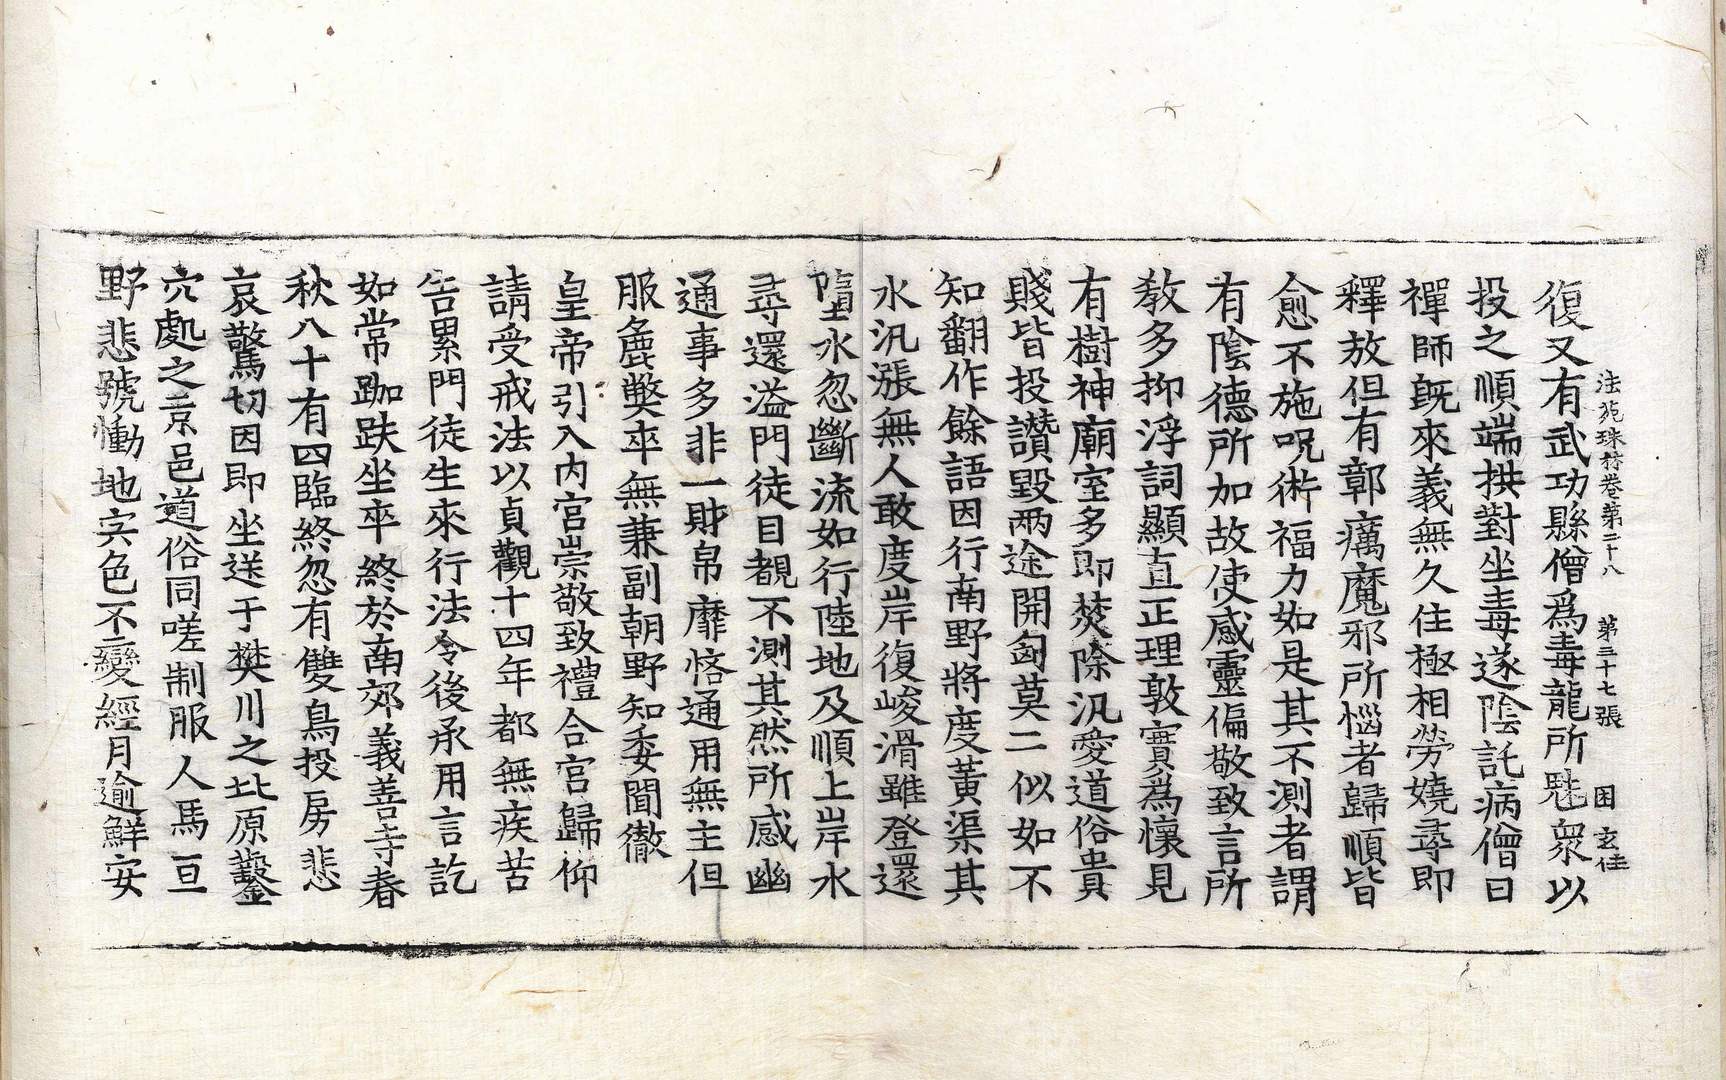 法苑珠林卷第二十八 第三十七張 困 玄佳
復又有武功縣僧爲毒龍所魅衆以
投之順端拱對坐毒遂陰託病僧曰
禪師旣來義無久住極相勞嬈尋即
釋放但有鄣癘魔邪所惱者歸順皆
愈不施呪術福力如是其不測者謂
有陰德所加故使感靈偏敬致言所
敎多抑浮詞顯直正理敦實爲懷見
有樹神廟室多即焚除汎愛道俗貴
賤皆投讚毀兩途開匈莫二似如不
知翻作餘語因行南野將度黃渠其
水汎漲無人敢度岸復峻滑雖登還
墮水忽斷流如行陸地及順上岸水
尋還溢門徒目覩不測其然所感幽
通事多非一財帛靡悋通用無主但
服麁獘卒無兼副朝野知委聞徹
皇帝引入內宮崇敬致禮合宮歸仰
請受戒法以貞觀十四年都無疾苦
告累門徒生來行法令後承用言訖
如常跏趺坐卒終於南郊義善寺春
秋八十有四臨終忽有雙鳥投房悲
哀驚切因即坐送于樊川之北原鑿
穴處之京邑道俗同嗟制服人馬亘
野悲號慟地宍色不變經月逾鮮安